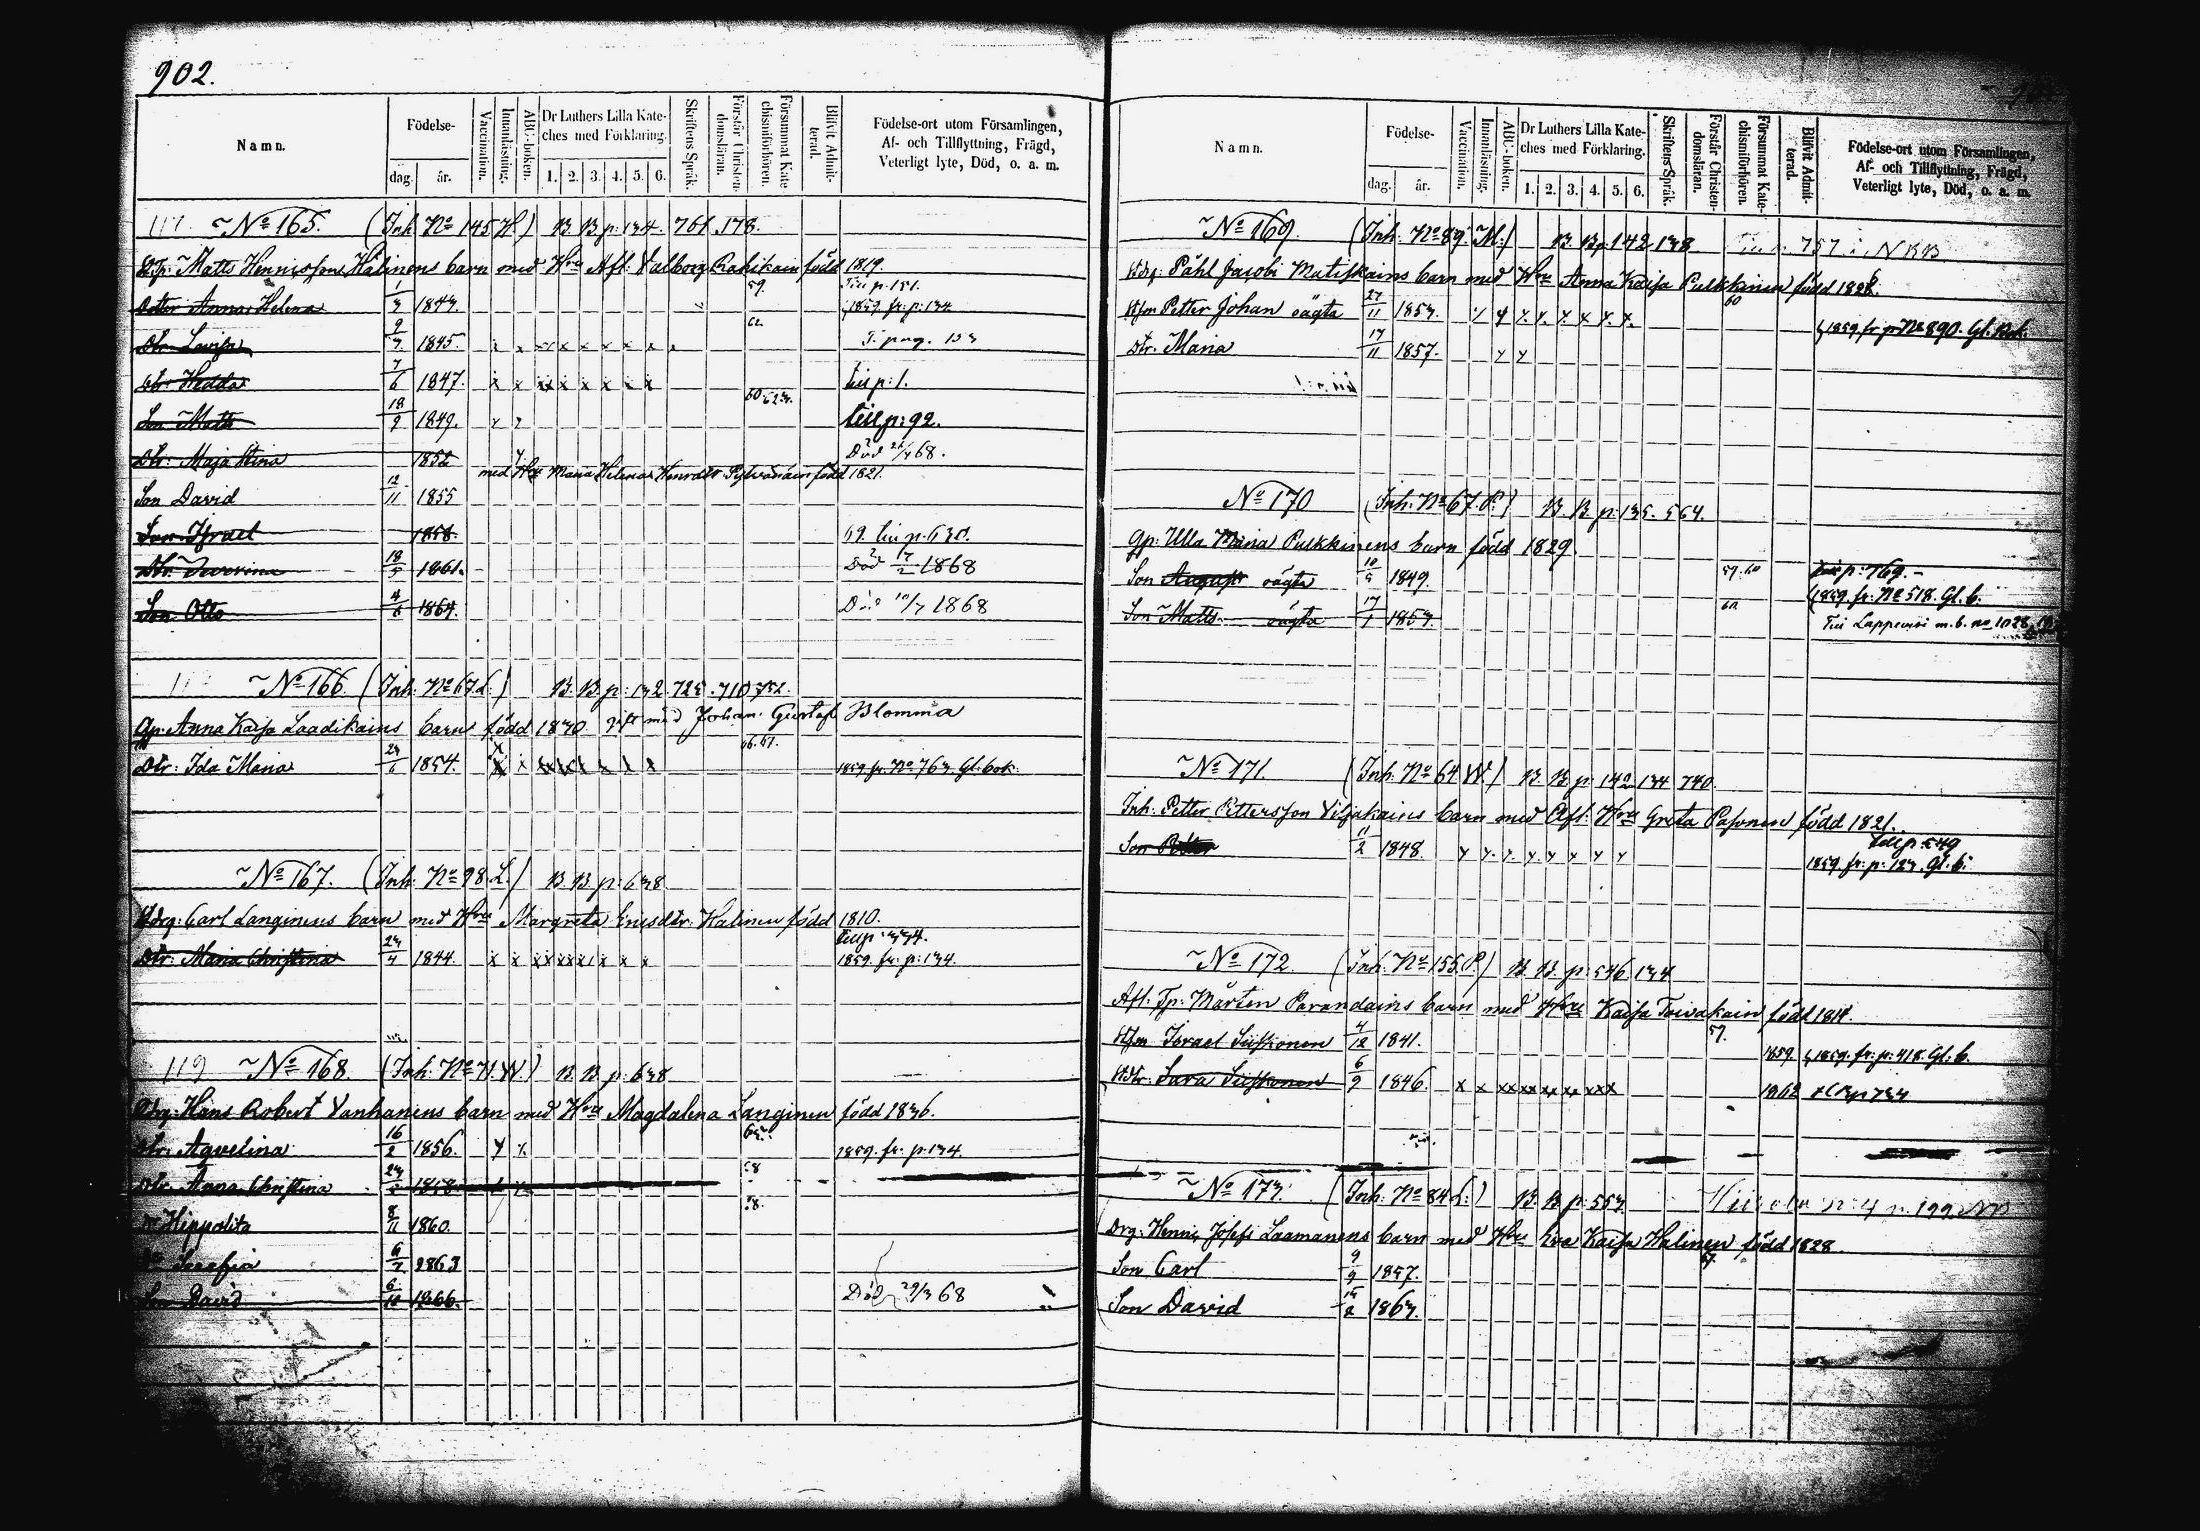 902.
Namn. Födelse- dag. år. Vaccination. Innanläsning. ABC-boken. Dr Luthers Lilla Kateches med Förklaring. 1. 2. 3. 4. 5. 6. Skriftens Språk. Förstår Christendomsläran. Försummat Katechismiförhören. Blifvit Admitterad. Födelse-ort utom Församlingen, Af- och Tillflyttning, Frägd, Veterligt lyte, Död, o. a. m.
No 165. (Inh. No 145 H.) B. B. p. 134. 761. 178.
Matts Hennicsson Halinens barn med Hru Afl. Valborg Rahikain född 1819.
59. Till p. 151.
Dotter Anna Helena 1/3 1843. 1859. fr. p. 134.
62.
Dtr. Lovisa 9/7 1845. x x x x x x x x
Dtr. Hedda 7/6 1847. x x x x x x x x till p: 1.
Son Matts 18/9 1849. till p: 92.
Dtr: Maja Stina 1852 Död 68.
med Hru Maria Helena född 1821.
Son David 12/11 1855
Son Israel 1858.
Dtr. Severina 1861. Död 17/2 1868
Son Otto 4/6 1864. Död 10/7 1868
No 166. (Inh. No 67 L.) B. B. p: 132. 725. 710
Gp. Anna Kaisa Laadikains barn född 1830 gift med Johan Gustaf Blomma
66. 67.
Dtr: Ida Maria 23/6 1854. x x x x x x x x 1859. fr. No 763. Gl. bok.
No 167. (Inh. No 98 L.) B. B. p: 638
Carl Langinens barn med Hru Margreta Ericsdtr. Halinen född 1810.
till p: 334.
Dtr: Maria Christina 23/4 1844. x x x x x x x x 1859. fr. p: 134.
119 No 168. (Inh. No 71 W.) B. B. p: 638
Hans Robert Vanhanens barn med Hru Magdalena Langinen född 1836.
Dtr. Aqvelina 16/2 1856. 1859. fr. p. 134.
Dtr. Anna Christina 1858
Hippolita 8/11 1860.
Serafia 1863
Son David 6/10 1866. Död 29/3 68
Namn. Födelse- dag. år. Vaccination. Innanläsning. ABC-boken. Dr Luthers Lilla Kateches med Förklaring. 1. 2. 3. 4. 5. 6. Skriftens Språk. Förstår Christendomsläran. Försummat Katechismiförhören. Blifvit Admitterad. Födelse-ort utom Församlingen, Af- och Tillflyttning, Frägd, Veterligt lyte, Död, o. a. m.
No 169. (Inh. No 89. M.) B. B. p: 142. 138 757 i NBB
Påhl Jacobi Matiskains barn med Hru Anna Kaisa Pulkkinen född 1828.
60
Petter Johan oägta 27/11 1853. 1859. fr. p. No 890. Gl. Bok.
Dtr. Maria 17/11 1857.
No 170 (Inh. No 67. P.) B. B. p: 135. 564.
Gp: Ulla Maria Pulkkinens barn född 1829.
Son August oägta 10/5 1849. 59. 60 till p: 769.
1859. fr: No 518. Gl. b.
Son Matts oägta 17/1 1853. 60 Till Lappvesi m. b. no 1028
No 171. (Inh. No 64 W.) B. B. p: 142 134 740.
Inh: Petter Pettersson Viljakains barn med Afl. Hru Greta Pasonen född 1821.
till p: 549
Son Petter 11/2 1848. 1859. fr: p: 123. Gl. b.
No 172. (Inh. No 155. P.) B. B. p: 546. 134
Afl. Tp: Mårten Parandains barn med Hru Kaisa Toivakain född 181
57.
Israel Siiskonen 4/12 1841. 1859. 1859. fr: p: 418. Gl. b.
Sara Siiskonen 6/9 1846. x x x x x x x x x 1862 734
No 173. (Inh. No 84 L.) B. B. p: 553.
Drg: Hennic Josefs Laamanens barn med Hru Eva Kaisa Halinen född 1828.
Son Carl 9/9 1857.
Son David 1863.